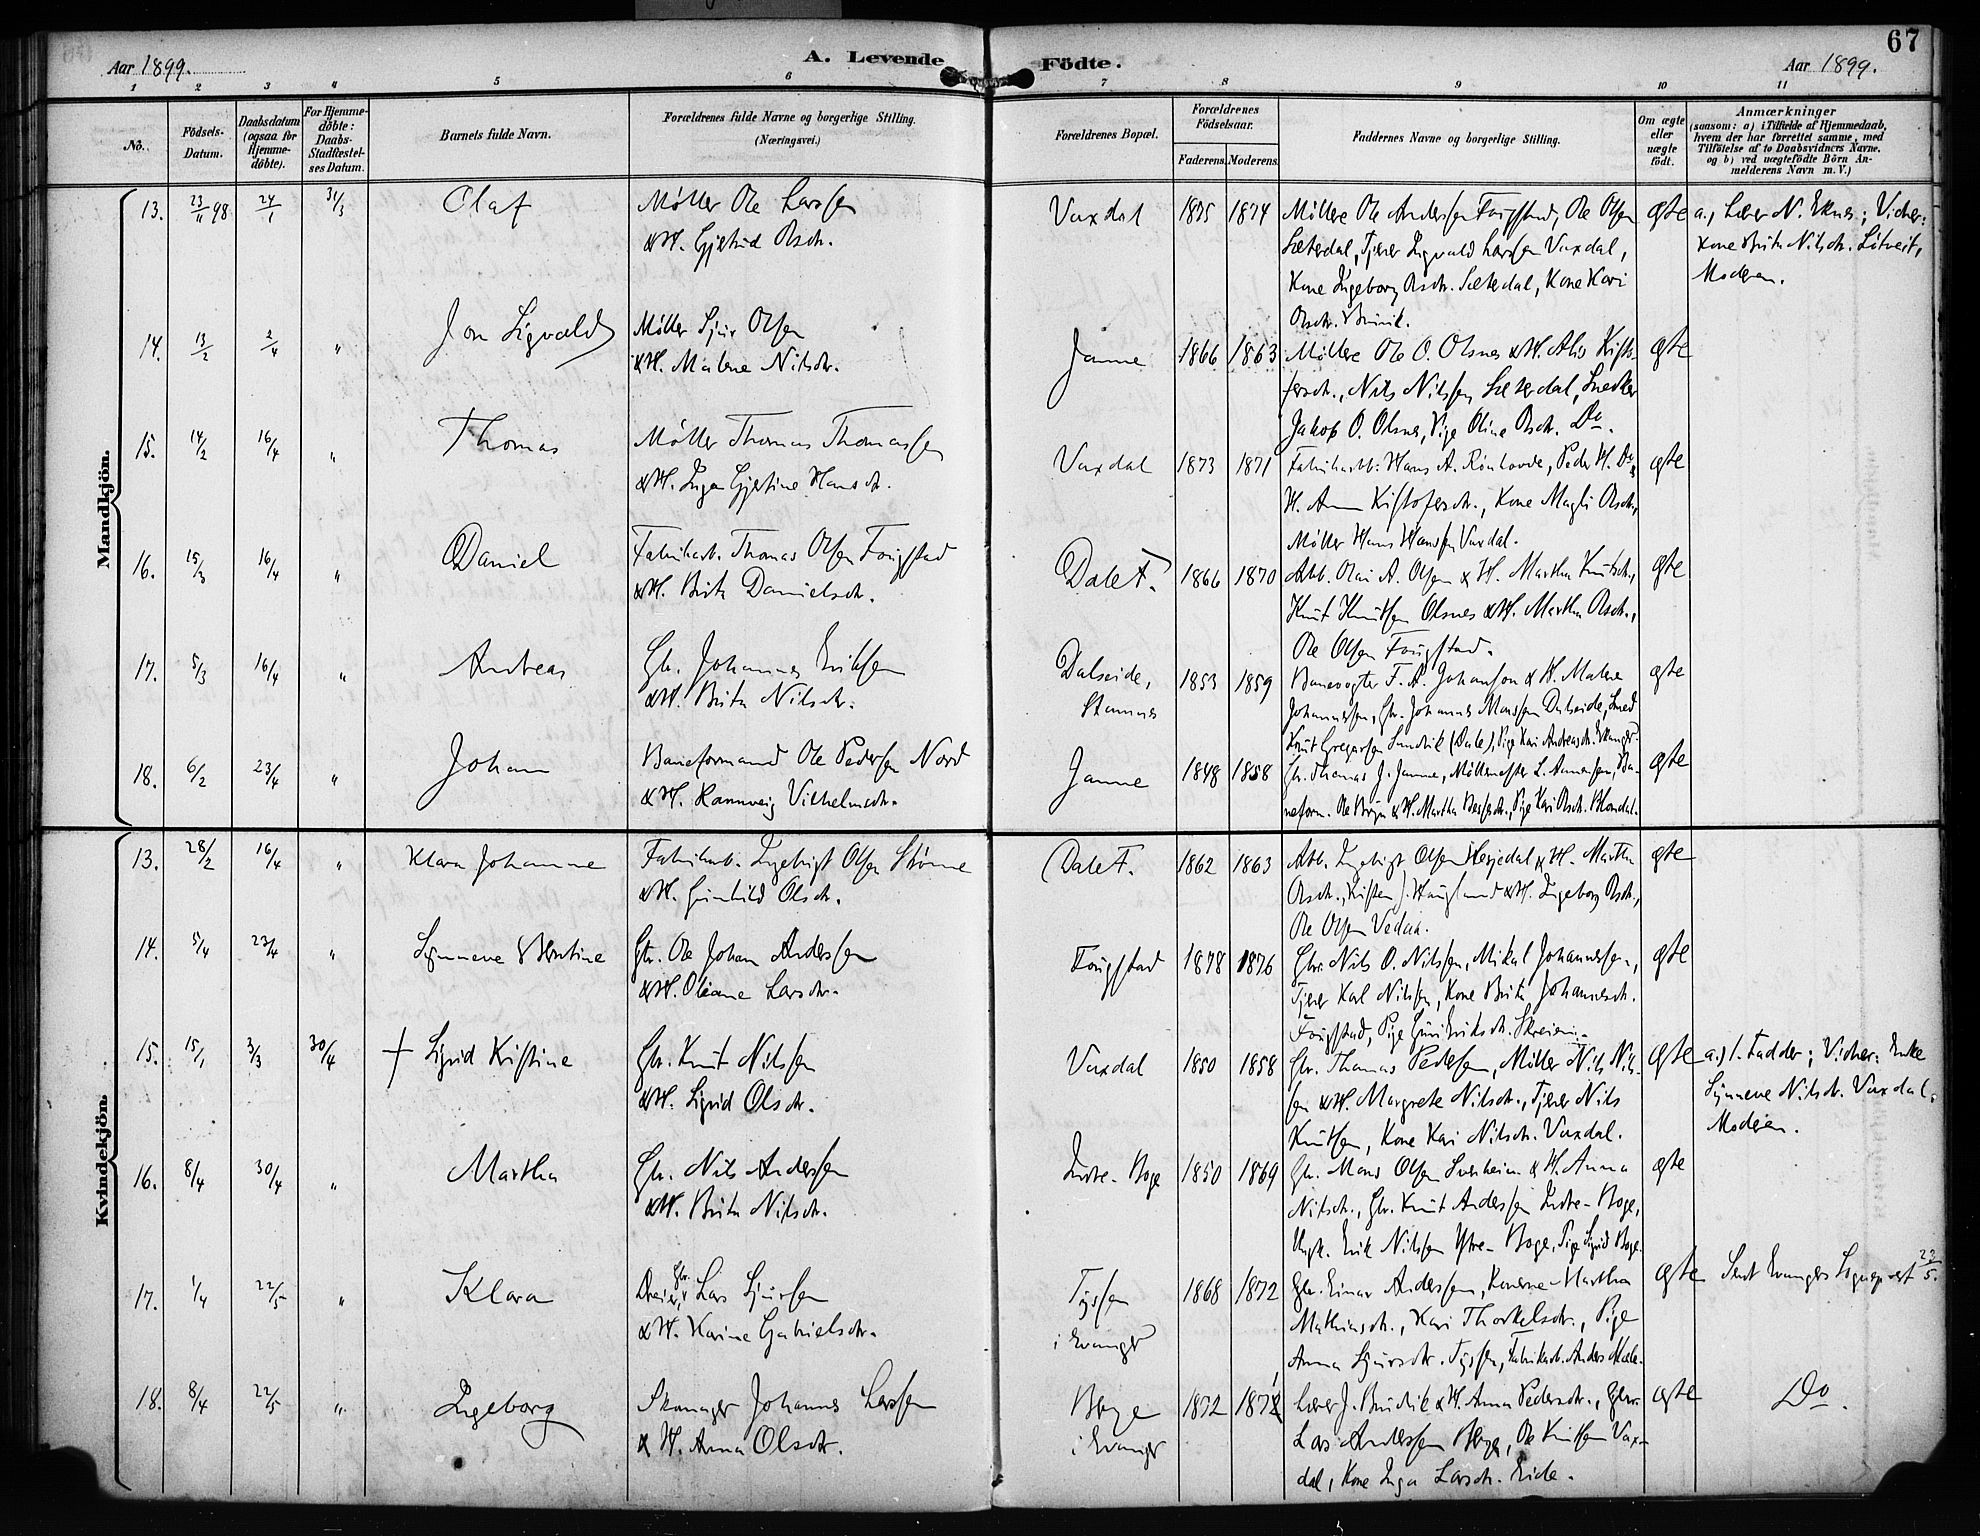 67
Aar 1899.
A. Levende Födte.
Aar 1899.
1 2 3 " 5 6 7 8 9 10 11
No.
Födsels-Datum.
Daabsdatum (ogsaa for Hjemmedöbte).
For Hjemmedöbte: Daabs-Stadfæstelses Datum.
Barnets fulde Navn.
Forældrenes fulde Navne og borgerlige Stilling.
(Næringsvei.)
Forældrenes Bopæl.
Forældrenes Födselsaar.
Faderens. Moderens.
Faddernes Navne og borgerlige Stilling.
Om ægte eller uægte födt.
Anmærkninger
(saasom: a) i Tilfælde af Hjemmedaab,
hvem der har forrettet samme, med
Tilföielse af to Daabsvidners Navne.
og b) ved uægtefödte Börn An-
melderens Navn m. V.)
Mandkjön.
13. 23/11 98 24/1 31/3 Olaf Møller Ole Larssen Vaxdal 1875 1874 Møllere Ole Anderssen Fougstad, Ole Olsen ægte a., Lærer N. Eknes; Vidner:
&H. Gjertrud Olsdr. Sæterdal, Tjener Ingvald Larssen Vaxdal, Kone Brita Nilsdr. Litveit,
Kone Ingeborg Olsdr. Sæterdal, Kone Kari Moderen.
Olsdr.
14. 13/2 2/4 " Jon Sigvald Møller Sjur Olsen Jamne 1866 1863 Møllere Ole O. Olsnes &H. Aliv Kristo- ægte
&H. Malene Nilsdr. fersdr., Nils Nilssen Sæterdal, Snedker
Jakob O. Olsnes, Pige Oline Olsdr. Do.
15. 14/2 16/4 " Thomas Møller Thomas Thomassen Vaxdal 1873 1871 Fabrikarb: Hans A. Rønhovde, Peder H. Do, ægte
&H. Inga Gjertine Hansdr. H. Anna Kristofersdr., Kone Magli Olsdr.,
Møller Hans Hanssen Vaxdal.
16. 15/3 16/4 " Daniel Fabrikarb. Thomas Olsen Fougstad Dale F. 1866 1870 Arb. Olai A. Olsen & H. Martha Knutsdr., ægte
&H. Brita Danielsdr. Knut Knutsen Olsnes &H. Martha Olsdr.,
Ole Olsen Fougstad.
17. 5/3 16/4 " Andreas Gbr. Johannes Eriksen Dalseide, 1853 1859 Banevogter F. A. Johanson & H. Malene ægte
&H. Brita Nilsdr. Stamnes Johannessen, Gbr. Johannes Monssen Dalseide, Smed
Knut Gregorsen Sandvik (Dale), Pige Kari Andreasdr. Evanger
18. 6/2 23/4 " Johan Baneformand Ole Pedersen Nord Jamne 1848 1858 Gbr. Thomas J. Jamne, Møllemester L. Amensen, Ba- ægte
& H. Rannveig Vilhelmsdr. neform. Ole & H. Martha Pige Kari Olsdr. Blomdal.
Kvindekjön.
13. 28/2 16/4 " Klara Johanne Fabrikarb. Ingebrigt Olsen Skorne Dale F. 1862 1863 Arb. Ingebrigt Olsen Herjedal & H. Martha ægte
&H. Gunhild Olsdr. Olsdr., Kristen J. Haugland &H. Ingeborg Olsdr.,
Ole Olsen Vedaa.
14. 5/4 23/4 " Synneve Berntine Gbr. Ole Johan Anderssen Fougstad 1878 1876 Gbr. Nils O. Nilssen, Mikal Johannessen, ægte
&H. Oleane Larsdr. Tjener Karl Nilssen, Kone Brita Johannesdr.
Fougstad, Pige Guri Eriksdr. Skreien.
15. 15/1 3/3 30/4 † Sigrid Kristine Gbr. Knut Nilssen Vaxdal 1850 1858 Gbr. Thomas Pedersen, Møller Nils Nils- ægte a.) 1. Fadder; Vidner: Enke
&H. Sigrid Olsdr. sen &H. Margrete Nilsdr., Tjener Nils Synneve Nilsdr. Vaxdal.
Knutsen, Kone Kari Nilsdr. Vaxdal. Moderen.
16. 8/4 30/4 " Martha Gbr. Nils Anderssen Indre-Boge 1850 1869 Gbr. Mons Olsen Solheim & H. Anna ægte
&H. Brita Nilsdr. Nilsdr., Gbr. Knut Anderssen Indre-Boge,
Ungk. Erik Nilssen Ytre-Boge, Pige Sigrid Boge.
17. 1/4 22/5 " Klara Dreier, Gbr. Lars Sjurssen Tyssen 1868 1872 Gbr. Einar Anderssen, Konerne Martha ægte Sendt Evangers Sogneprest 23/5.
& H. Karine Gabrielsdr. i Evanger Mathiasdr., Kari Thorkelsdr., Pige
Anna Sjursdr. Tyssen, Fabrikarb. Anders
18. 8/4 22/5 " Ingeborg Skomager Johannes Larssen Berge 1872 1871 Lærer J. &H. Anna Pedersdr., Gbr. ægte Do.
& H. Anna Olsdr. i Evanger Lars Anderssen Berge, Ole Knutsen Vax-
dal, Kone Inga Larsdr. Eide.